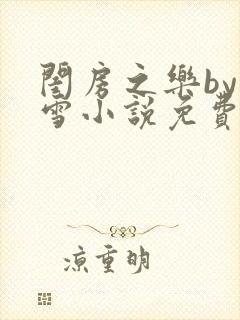 閨房之樂by
雪小說免費
涼重明